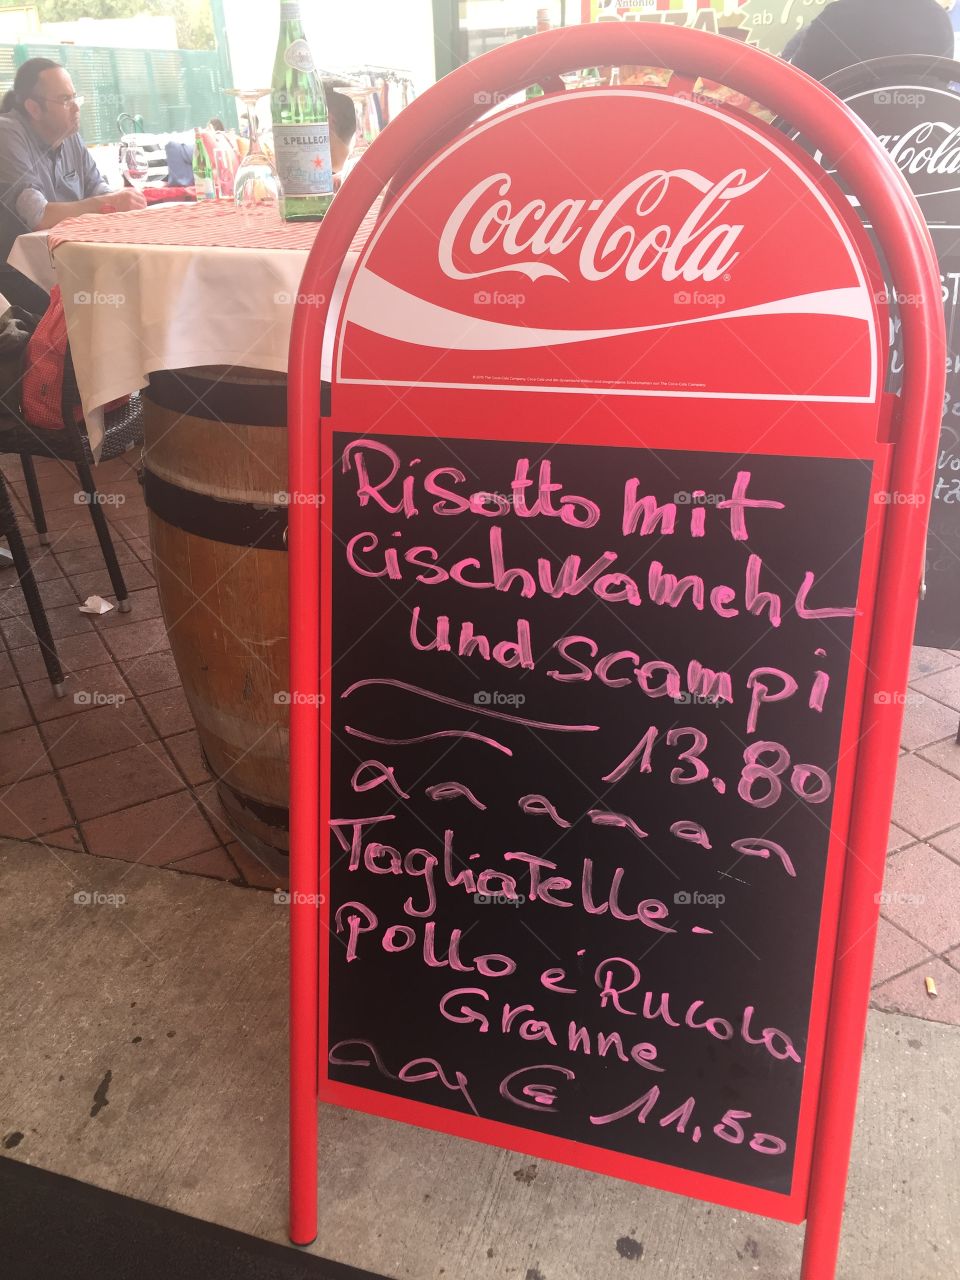 Antonio
PIZZA ab
S.PELLEGRINO
Coca-Cola
Coca-Cola
Risotto mit
eischwamehL
und scampi
13.80
TagliaTelle-
Pollo e Rucola
Granne
€ 11,50